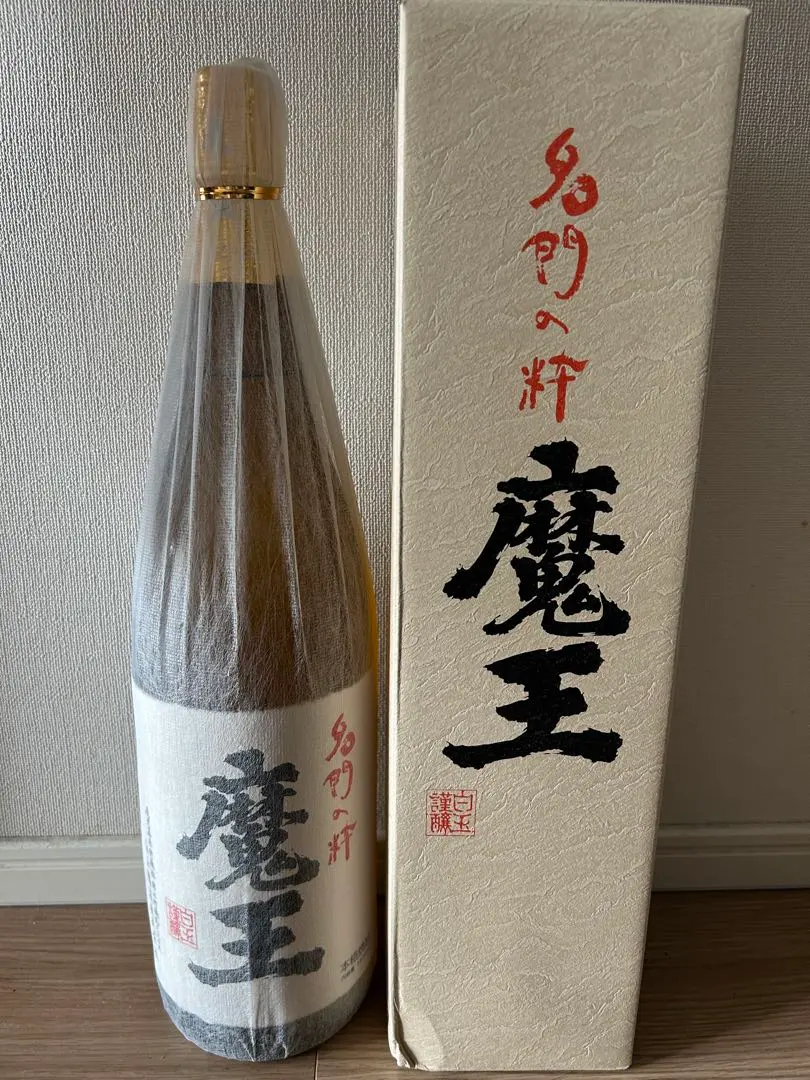 名門の粋
魔王
白玉
謹醸
名門の粋
魔王
白玉
謹醸
本格焼酎